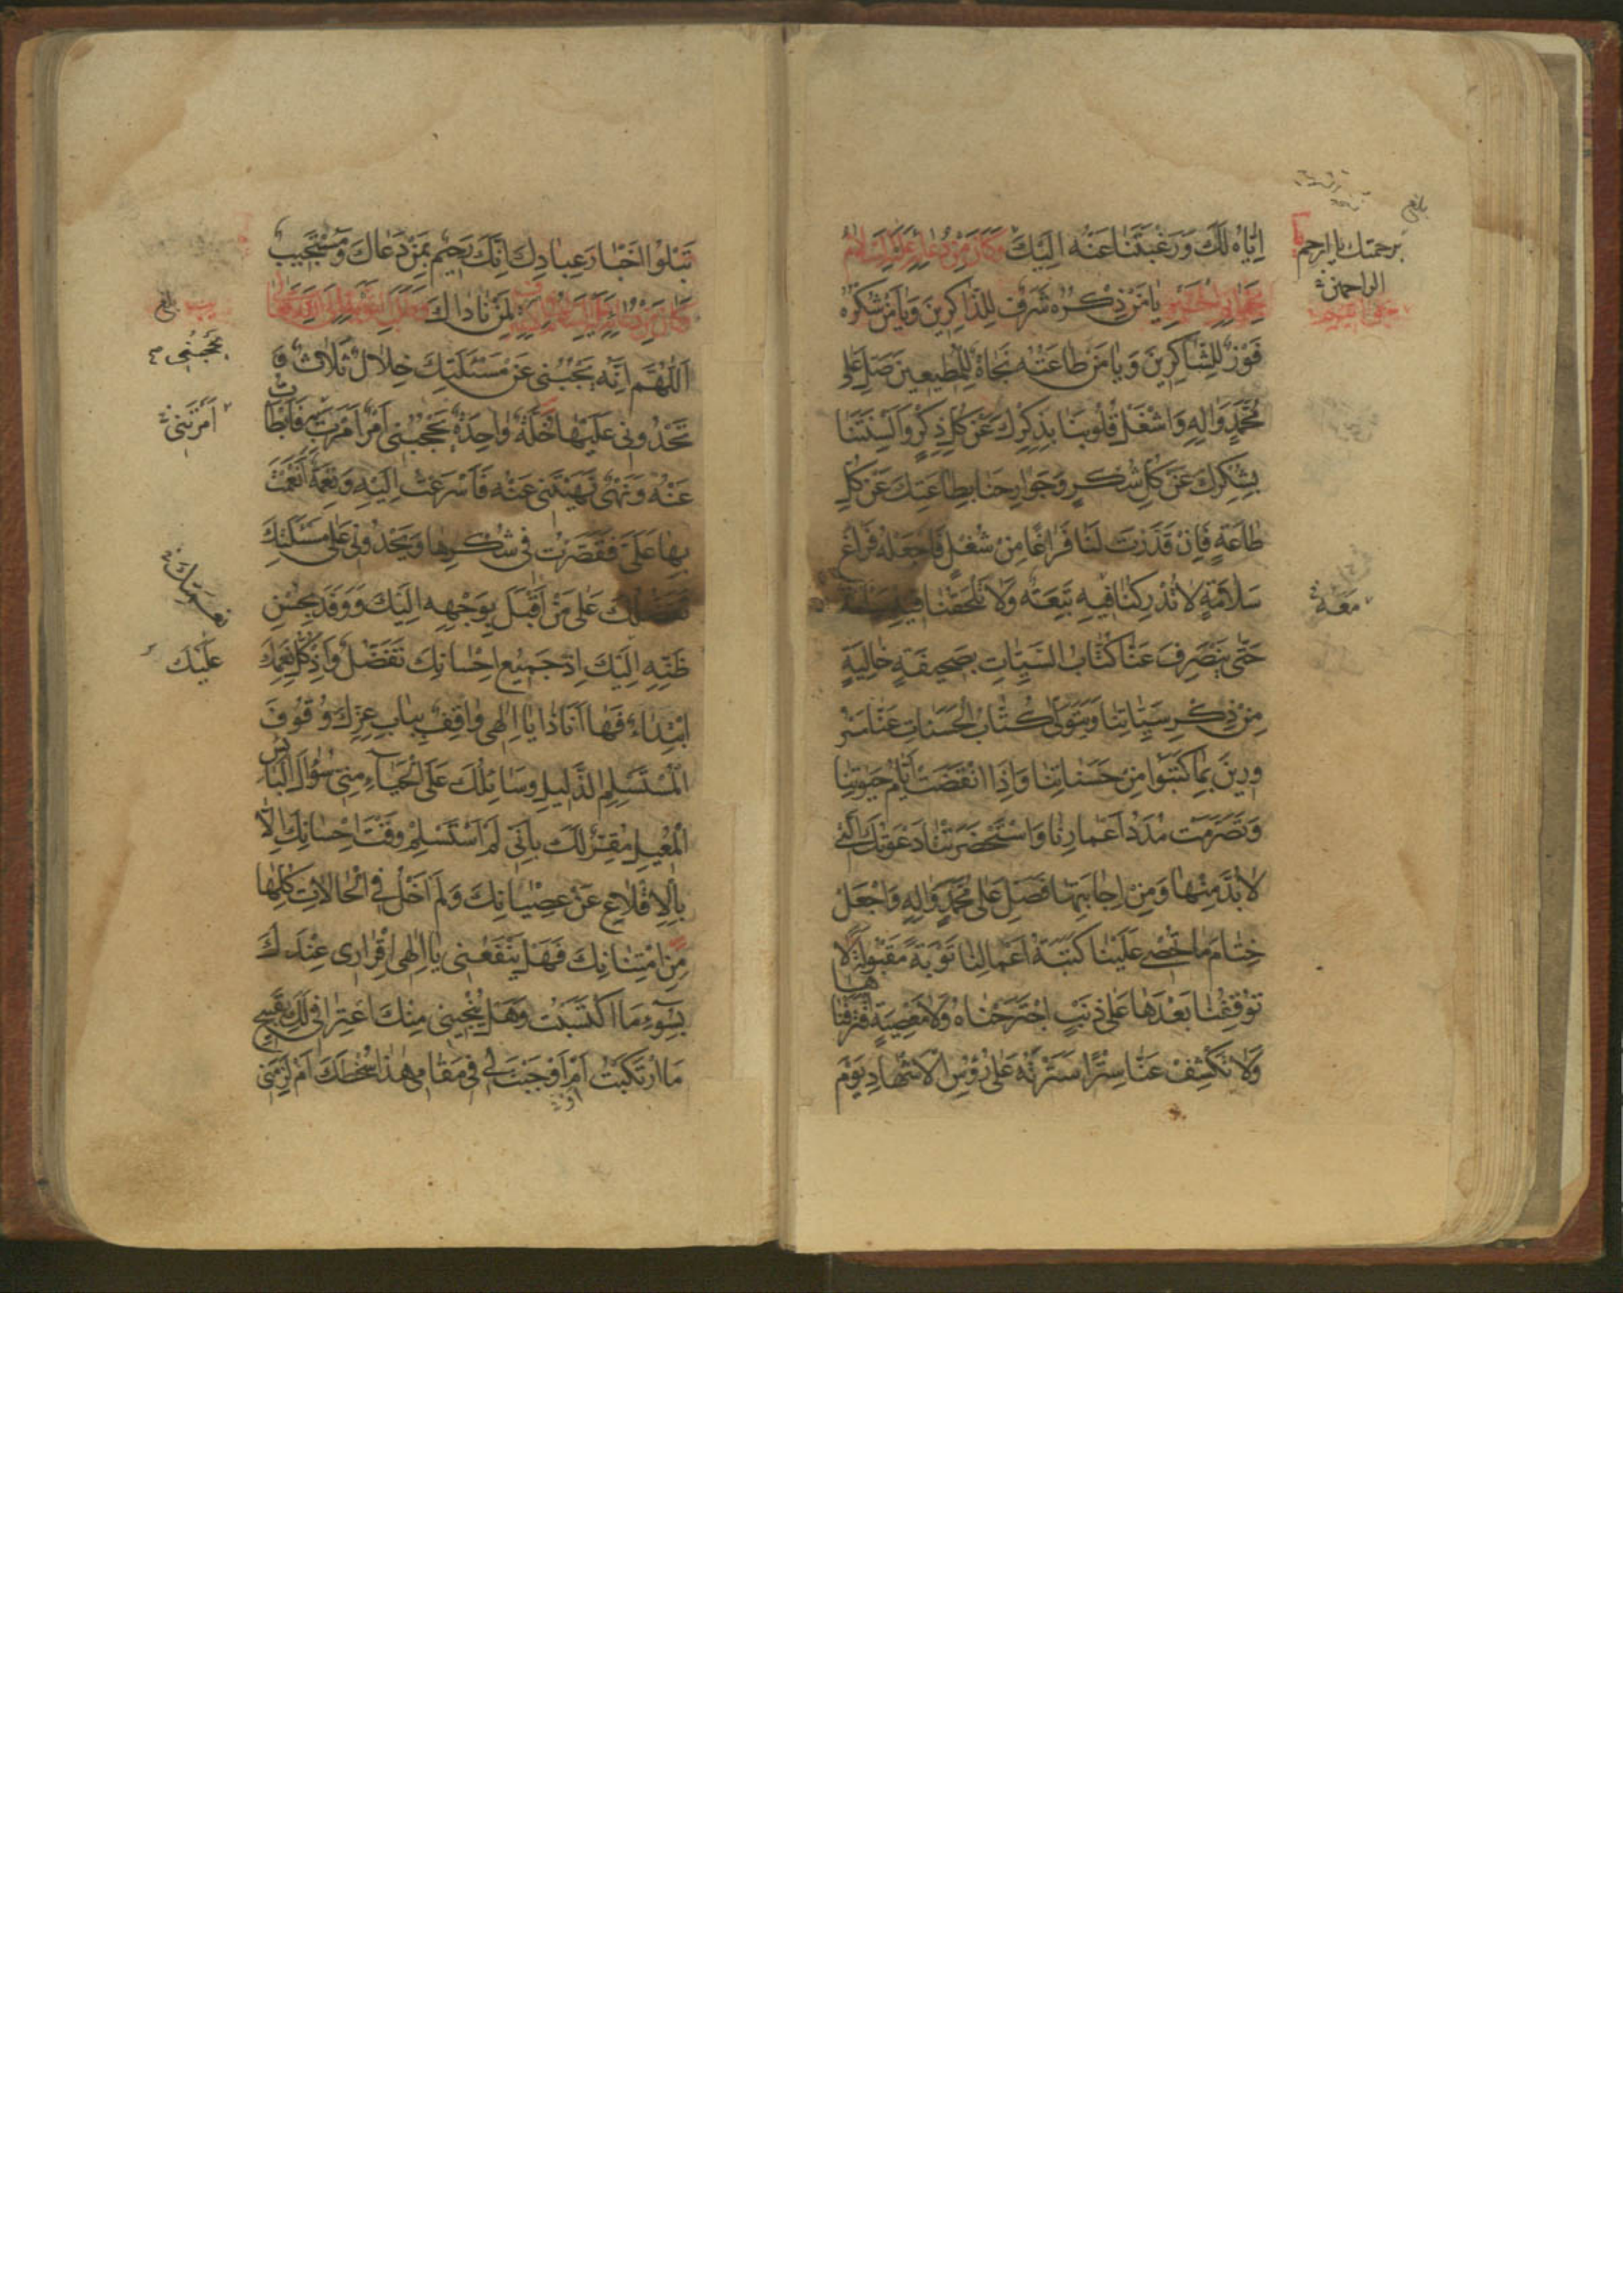 اِيّاهُ لَكَ وَرَغْبَتَنا عَنْهُ اِلَيْكَ وَكانَ مِنْ دُعائِهِ عَلَيْهِ السَّلامُ
يا مَنْ ذِكْرُهُ شَرَفٌ لِلذّاكِرينَ وَيا مَنْ شُكْرُهُ
فَوْزٌ لِلشّاكِرينَ وَيا مَنْ طاعَتُهُ نَجاةٌ لِلْمُطيعينَ صَلِّ عَلى
مُحَمَّدٍ وَالِهِ وَاشْغَلْ قُلُوبَنا بِذِكْرِكَ عَنْ كُلِّ ذِكْرٍ وَاَلْسِنَتَنا
بِشُكْرِكَ عَنْ كُلِّ شُكْرٍ وَجَوارِحَنا بِطاعَتِكَ عَنْ كُلِّ
طاعَةٍ فَاِنْ قَدَّرْتَ لَنا فَراغًا مِنْ شُغْلٍ فَاجْعَلْهُ فَراغَ
سَلامَةٍ لا تُدْرِكُنا فيهِ تَبِعَةٌ وَلا تَلْحَقُنا فيهِ
حَتّى يَنْصَرِفَ عَنّا كُتّابُ السَّيِّئاتِ بِصَحيفَةٍ خالِيَةٍ
مِنْ ذِكْرِ سَيِّئاتِنا وَيَتَوَلّى كُتّابُ الْحَسَناتِ عَنّا مَسْرُ
ورينَ بِما كَتَبُوا مِنْ حَسَناتِنا وَاِذَا انْقَضَتْ اَيّامُ حَيوتِنا
وَتَصَرَّمَتْ مُدَدُ اَعْمارِنا وَاسْتَحْضَرَتْنا دَعْوَتُكَ الَّتي
لابُدَّ مِنْها وَمِنْ اِجابَتِها فَصَلِّ عَلى مُحَمَّدٍ وَالِهِ وَاجْعَلْ
خِتامَ ما تُحْصي عَلَيْنا كَتَبَةُ اَعْمالِنا تَوْبَةً مَقْبُولَةً لا
تُوقِفُنا بَعْدَها عَلى ذَنْبٍ اجْتَرَحْناهُ وَلا مَعْصِيَةٍ اقْتَرَفْنا
ها
وَلا تَكْشِفْ عَنّا سِتْرًا سَتَرْتَهُ عَلى رُؤُسِ الْاَشْهادِ يَوْمَ
برحمتك يا ارحم
الراحمين
مَعَهُ
تَبْلُوا اَخْبارَ عِبادِكَ اِنَّكَ رَحيمٌ بِمَنْ دَعاكَ وَمُسْتَجيبٌ
لِمَنْ ناداكَ
اَللّهُمَّ اِنَّهُ يَحْجُبُني عَنْ مَسْئَلَتِكَ خِلالٌ ثَلاثٌ وَ
تَحْدُوني عَلَيْها خَلَّةٌ واحِدَةٌ يَحْجُبُني اَمْرٌ اَمَرْتَ بِهِ فَاَبْطَاْتُ
عَنْهُ وَنَهْيٌ نَهَيْتَني عَنْهُ فَاَسْرَعْتُ اِلَيْهِ وَنِعْمَةٌ اَنْعَمْتَ
بِها عَلَيَّ فَقَصَّرْتُ في شُكْرِها وَيَحْدُوني عَلى مَسْئَلَتِكَ
تَفَضُّلُكَ عَلى مَنْ اَقْبَلَ بِوَجْهِهِ اِلَيْكَ وَوَفَدَ بِحُسْنِ
ظَنِّهِ اِلَيْكَ اِذْ جَميعُ اِحْسانِكَ تَفَضُّلٌ وَاِذْ كُلُّ نِعَمِكَ
ابْتِداءٌ فَها اَنَا ذا يا اِلهي واقِفٌ بِبابِ عِزِّكَ وُقُوفَ
الْمُسْتَسْلِمِ الذَّليلِ وَسائِلُكَ عَلَى الْحَياءِ مِنّي سُؤالَ الْبائِسِ
الْمُعيلِ مُقِرٌّ لَكَ بِاَنّي لَمْ اَسْتَسْلِمْ وَقْتَ اِحْسانِكَ اِلّا
بِالْاِقْلاعِ عَنْ عِصْيانِكَ وَلَمْ اَخْلُ فِي الْحالاتِ كُلِّها
مِنِ امْتِنانِكَ فَهَلْ يَنْفَعُني يا اِلهي اِقْراري عِنْدَكَ
بِسُوءِ مَا اكْتَسَبْتُ وَهَلْ يُنْجيني مِنْكَ اعْتِرافي لَكَ بِقَبيحِ
مَا ارْتَكَبْتُ اَمْ اَوْجَبْتَ لي في مَقامي هذا سُخْطَكَ اَمْ لَزِمَني
يَحْجُبُني
اَمَرْتَني
عَلَيْكَ